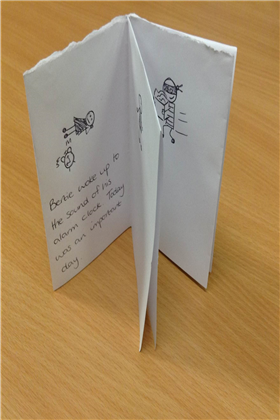 Bertie woke up to
the sound of his
alarm clock. Today
was an important
day